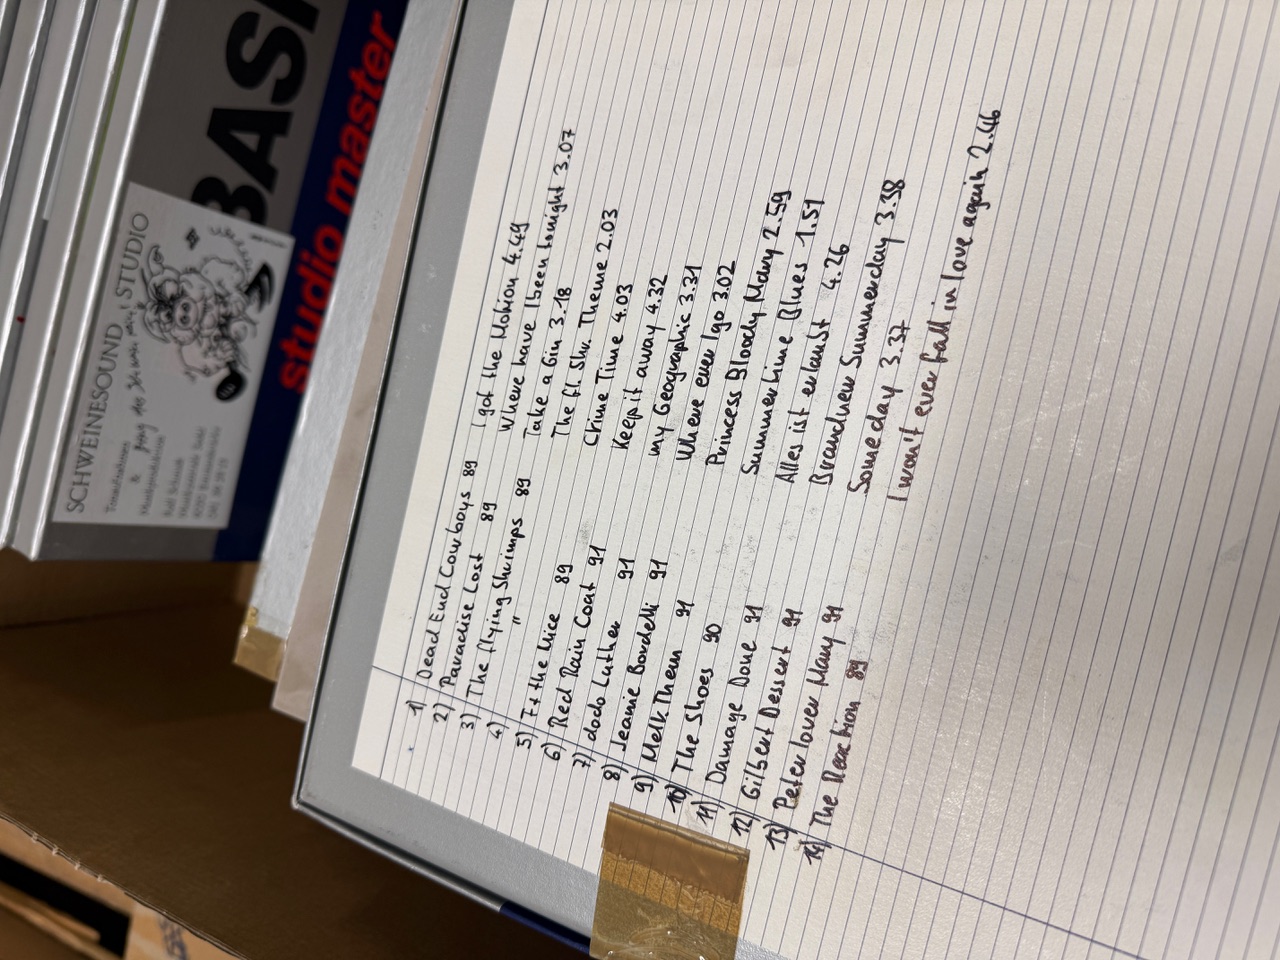 SCHWEINESOUND STUDIO
Tonaufnahmen
&
Musikproduktion
BASF
studio master
1) Dead End Cowboys 89 I got the Motion 4.49
2) Paradise Lost 89 Where have I been tonight 3.07
3) The flying Shrimps 89 Take a Gin 3.18
4) " 89 The fl. Shr. Theme 2.03
5) Ex the Mice 89 Crime Time 4.03
6) Red Rain Coat 91 Keep it away 4.32
7) dodo Luther 91 my Geographic 3.31
8) Jeanie Bordelli 91 Where ever I go 3.02
9) Melk Them 91 Princess Bloody Mary 2.59
10) The Shoes 90 Summertime Blues 1.51
11) Damage Done 91 Alles ist erlaubt 4.26
12) Gilbert Dessert 91 Brandnew Summerday 3.38
13) Peter lover Many 91 Someday 3.37
14) The Reaction 89 I won't ever fall in love again 2.46